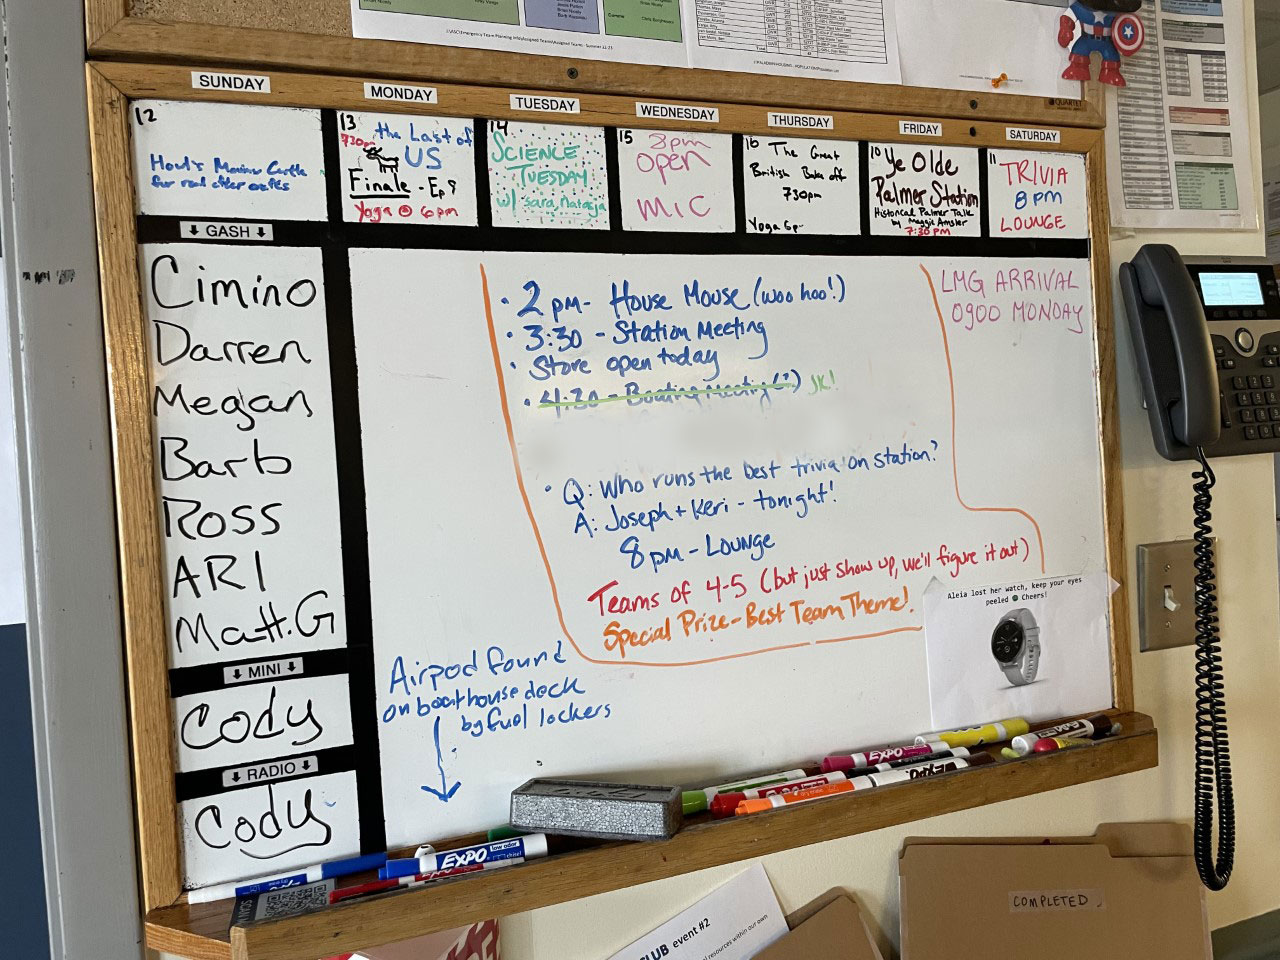 SUNDAY
MONDAY
TUESDAY
WEDNESDAY
THURSDAY
FRIDAY
SATURDAY
12
for
13
730pm
the Last of
US
Finale - Ep 9
Yoga @ 6pm
14
SCIENCE
TUESDAY
w/ sara, Natasja
15
8pm
open
Mic
16
The Great
British Bake off
730pm
Yoga 6p
10
Ye Olde
Palmer Station
Historical Palmer Talk
by Maggie Amsler
7:30 PM
11
TRIVIA
8 pm
LOUNGE
↓ GASH ↓
Cimino
Darren
Megan
Barb
Ross
ARI
Matt.G
↓ MINI ↓
Cody
↓ RADIO ↓
Cody
• 2 pm - House Mouse (woo hoo!)
• 3:30 - Station Meeting
• Store open today
• 4:30 - Boating Meeting (?) JK!
• Q: Who runs the best trivia on station?
A: Joseph + Keri - tonight!
8 pm - Lounge
Teams of 4-5 (but just show up, we'll figure it out)
Special Prize - Best Team Theme!
LMG ARRIVAL
0900 MONDAY
Aleia lost her watch, keep your eyes
peeled Cheers!
Airpod found
on boathouse deck
by fuel lockers
EXPO
low odor
EXPO
EXPO
QUARTET
CLUB event #2
resources within our own
COMPLETED